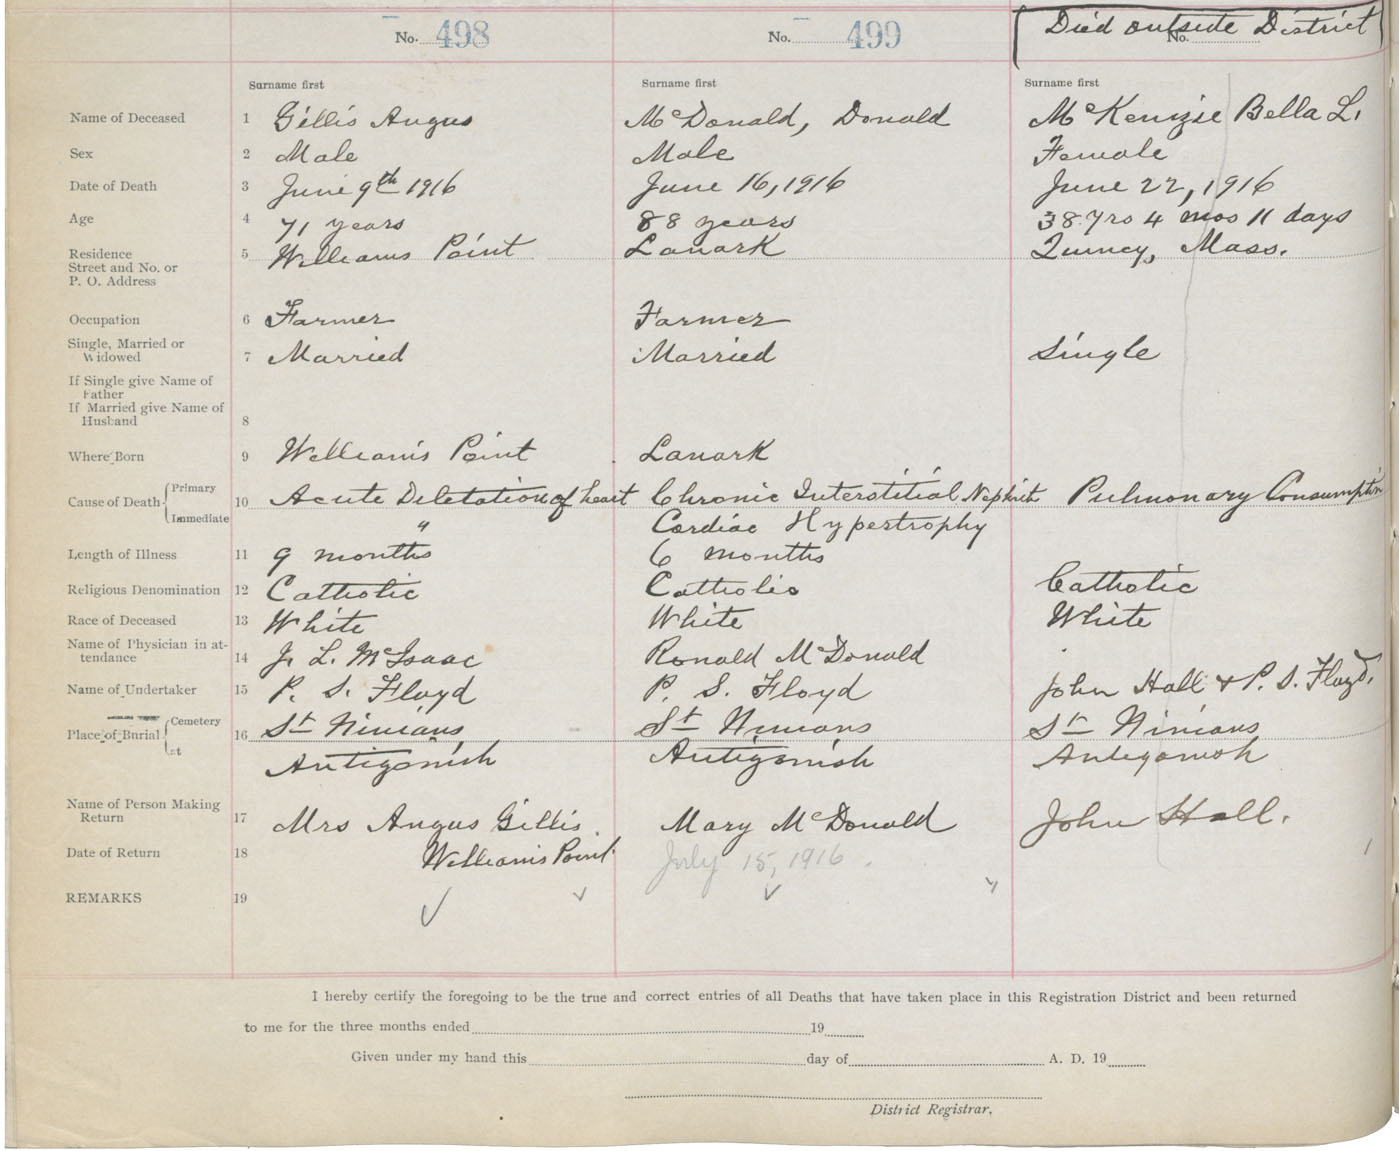 No. 498 No. 499 Died outside District No.
Surname first Surname first Surname first
Name of Deceased 1 Gillis Angus McDonald, Donald McKenzie Bella L.
Sex 2 Male Male Female
Date of Death 3 June 9th 1916 June 16, 1916 June 22, 1916
Age 4 71 years 88 years 38 yrs 4 mos 11 days
Residence 5 Williams Point Lanark Quincy, Mass.
Street and No. or
P. O. Address
Occupation 6 Farmer Farmer
Single, Married or
Widowed 7 Married Married Single
If Single give Name of
Father
If Married give Name of
Husband 8
Where Born 9 Williams Point Lanark
Cause of Death Primary 10 Acute Diletation of heart Chronic Interstitial Nephrit Pulmonary Consumption
Immediate " Cardiac Hypertrophy
Length of Illness 11 9 months 6 months
Religious Denomination 12 Catholic Catholic Catholic
Race of Deceased 13 White White White
Name of Physician in at-
tendance 14 J. L. McIsaac Ronald McDonald
Name of Undertaker 15 P. S. Floyd P. S. Floyd John Hall & P. S. Floyd.
Place of Burial Cemetery 16 St Ninians St Ninians St Ninians
at Antigonish Antigonish Antigonish
Name of Person Making
Return 17 Mrs Angus Gillis. Mary McDonald John Hall.
Date of Return 18 Williams Point. July 15, 1916.
REMARKS 19
I hereby certify the foregoing to be the true and correct entries of all Deaths that have taken place in this Registration District and been returned
to me for the three months ended 19
Given under my hand this day of A. D. 19
District Registrar.